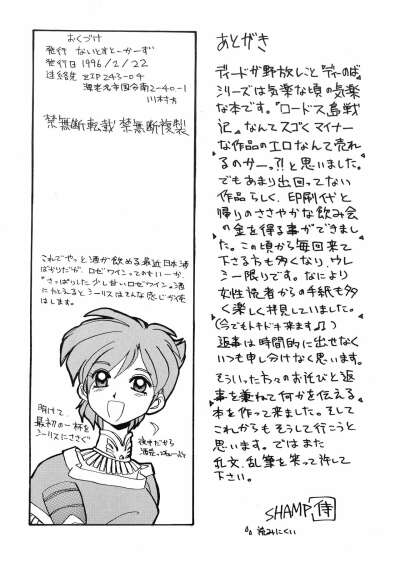 おくづけ
発行 ないとすとーかーず
発行日 1996/2/22
連絡先 ZIP 243-04
海老名市国分南2-40-1
川村方
禁無断転載 禁無断複製
これでやっと酒が飲める。最近日本酒
ばかりだが、ロゼワインってのもいーか。
さっぱりした少し甘いロゼワイン。酒
にたとえるとシーリスはそんな感じが俺
はします。
明けて
最初の一杯を
シーリスにささぐ
夜中だから
あとがき
ディードが野放しこと『ディのば』
シリーズは気楽な頃の気楽
な本です。『ロードス島戦
記』なんてスゴくマイナー
な作品のエロなんて売れ
るのサーっ?!と思いました。
でもあまり出回ってない
作品らしく、印刷代と
帰りのささやかな飲み会
の金を得る事ができまし
た。この頃から毎回来て
下さる方も多くなり、ウレ
シー限りです。なにより
女性読者からの手紙も多
く楽しく拝見していました。
(今でもトキドキ来ます♪)
返事は時間的に出せなく
いつも申し分けなく思います。
そういった方々のお詫びと返
事を兼ねて何かを伝える
本を作って来ました。そして
これからもそうして行こうと
思います。ではまた
乱文、乱筆を笑って許して
下さい。
SHAMP 侍
読みにくい